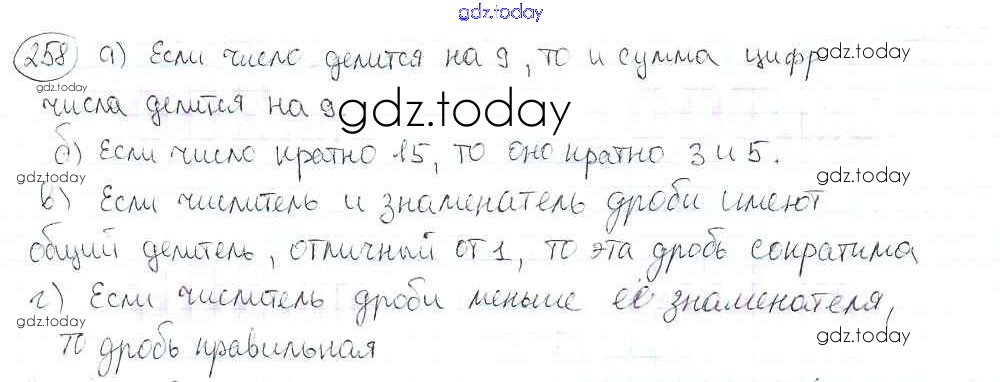 gdz.today
258 а) Если число делится на 9, то и сумма цифр gdz.today
gdz.today
числа делится на 9. gdz.today
б) Если число кратно 15, то оно кратно 3 и 5.
gdz.today gdz.today
в) Если числитель и знаменатель дроби имеют
общий делитель, отличный от 1, то эта дробь сократима
г) Если числитель дроби меньше её знаменателя,
gdz.today gdz.today
то дробь правильная